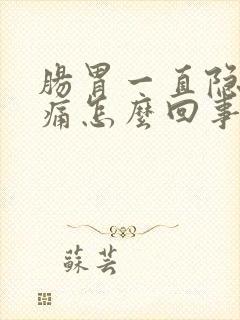 腸胃一直隐
痛怎麽回事
蘇芸